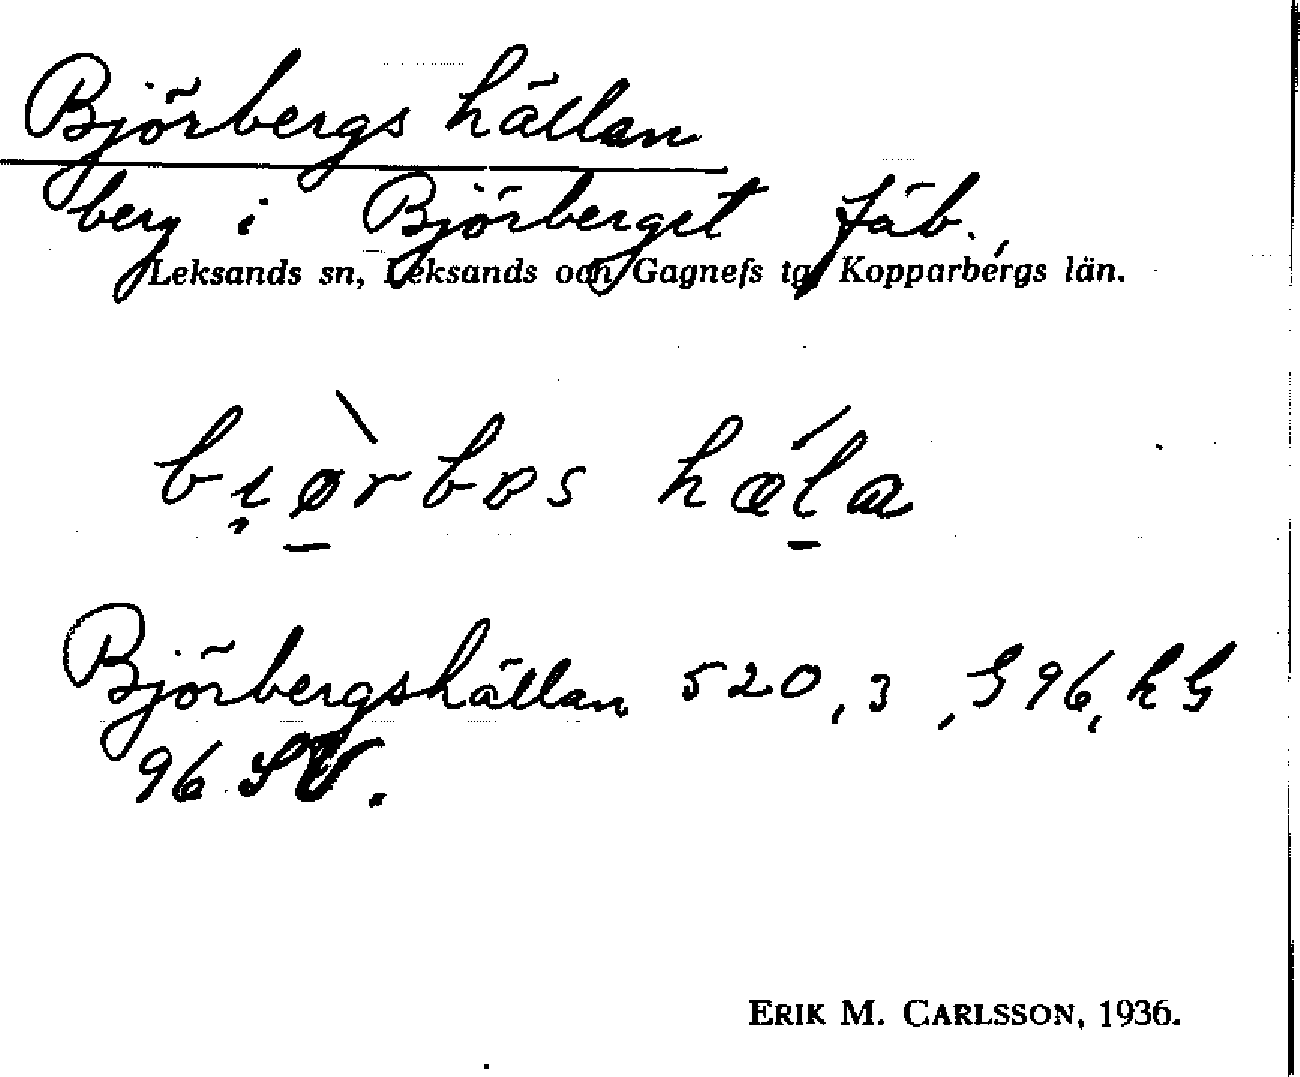 Björbergs hällan
berg i Björberget fäb.,
Leksands sn, Leksands och Gagnefs tg, Kopparbergs län.
bı̯ø̠̀rbɵs hǽ̠la
Björbergshällan 520,3, G 96, h G
96 SV.
ERIK M. CARLSSON, 1936.